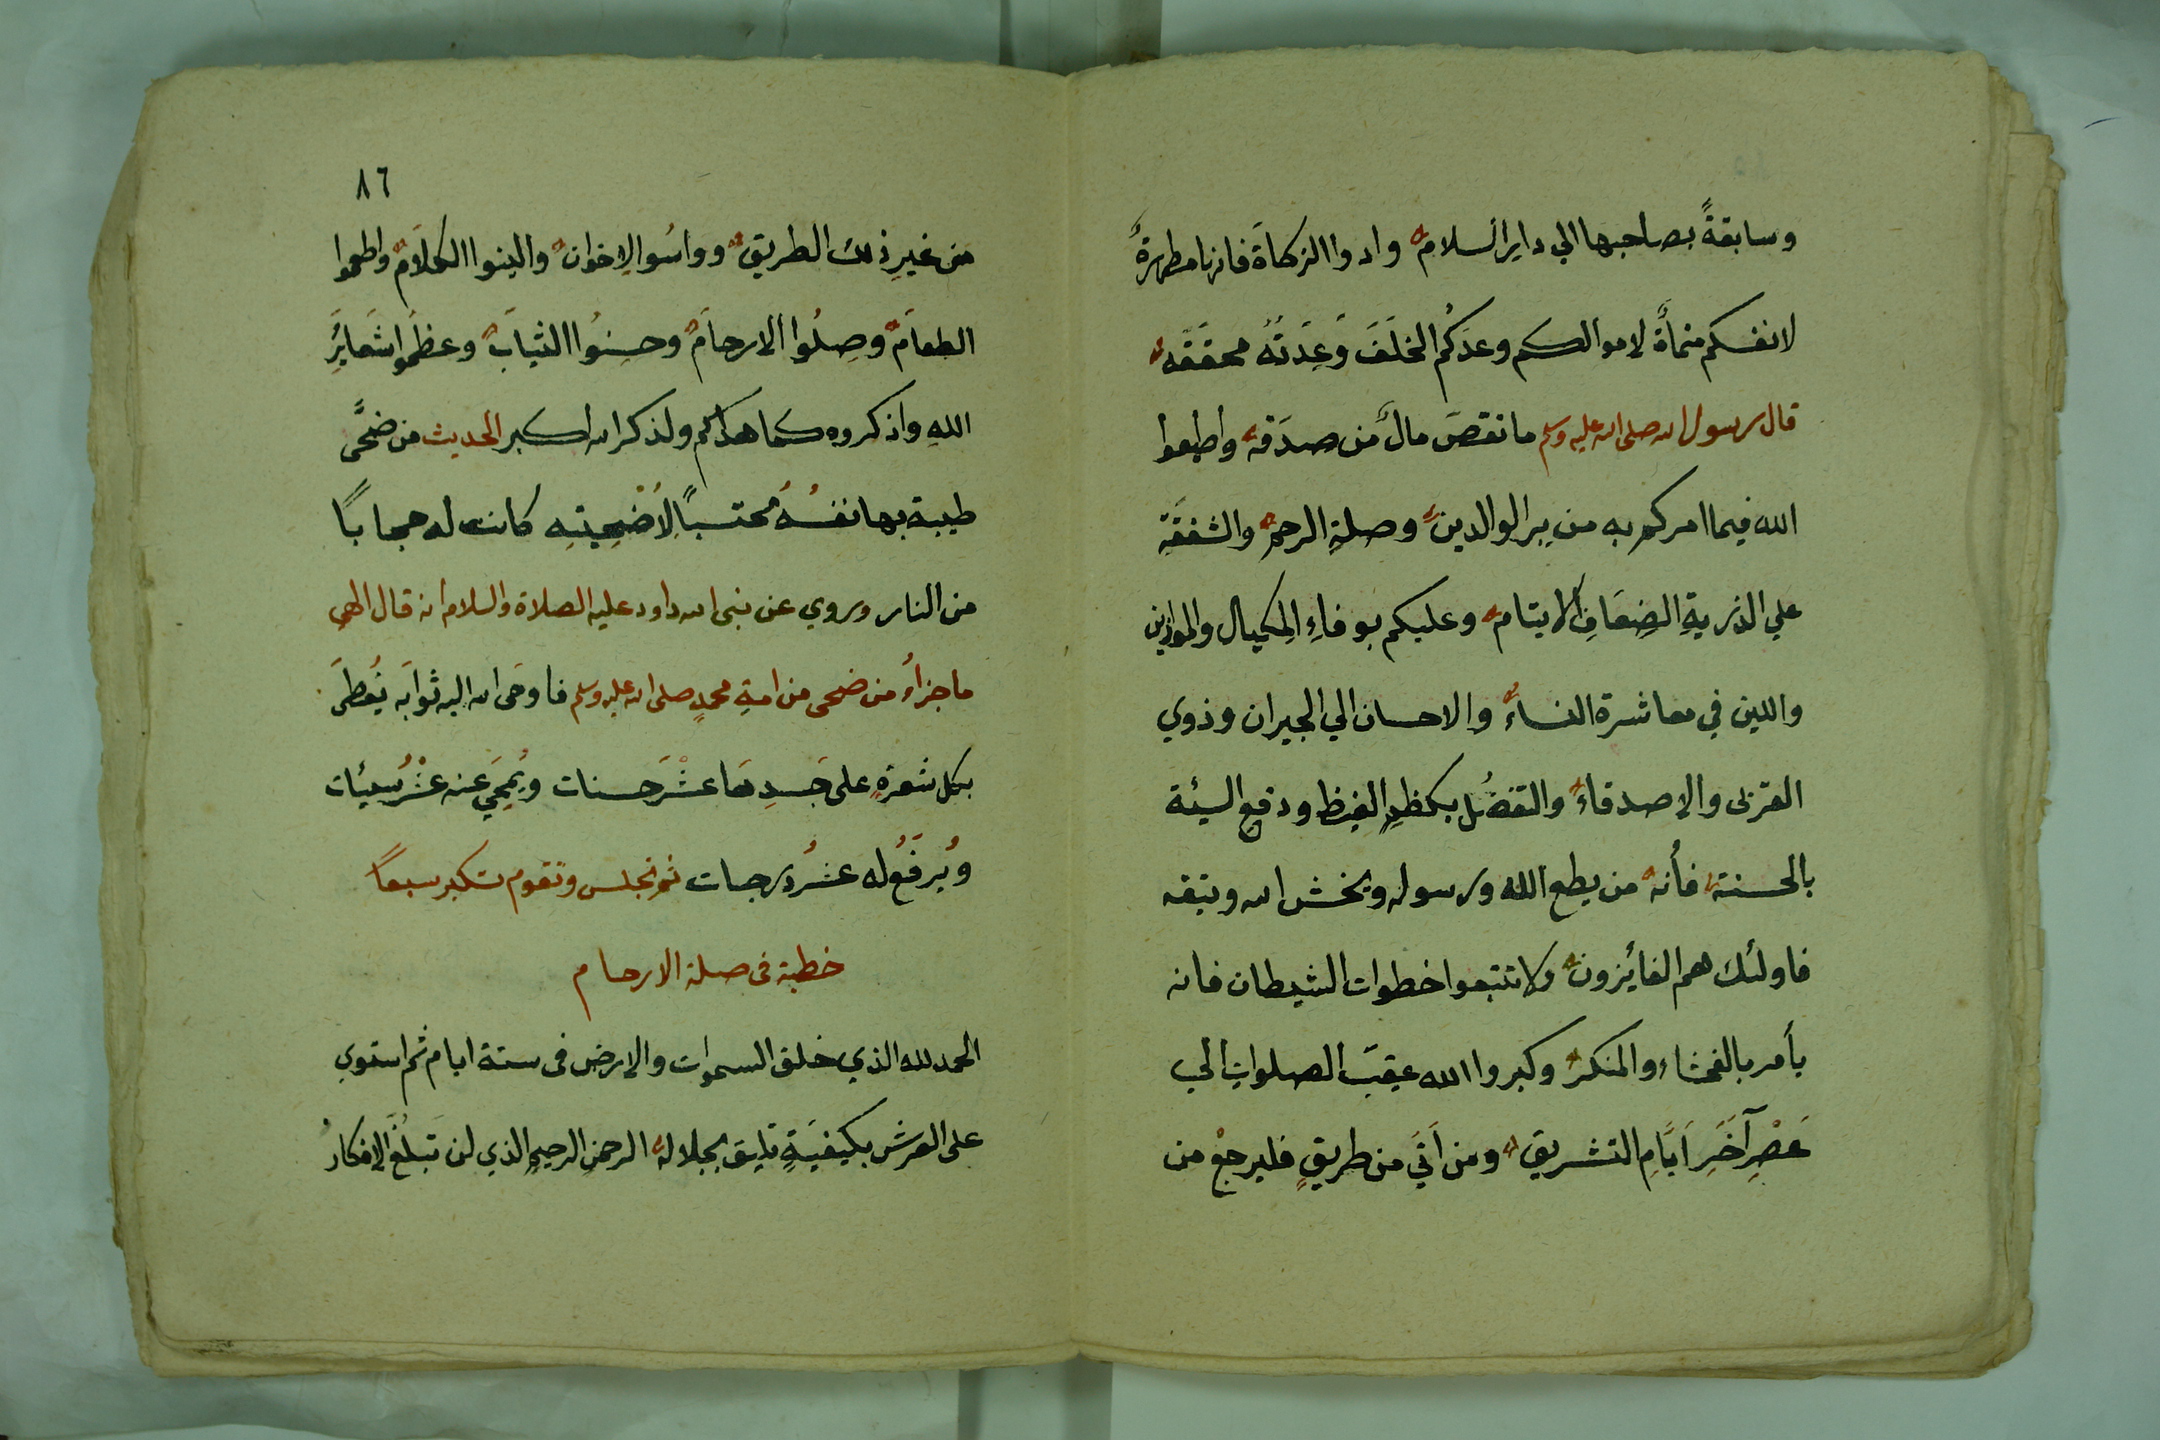 وسابقةً بصاحبها الي دارِ السلام وادوا الزكاةَ فانها مطهرةٌ
لانفسكم منماةٌ لاموالكم وعدَكُم الخلَفَ وَعِدَتُهُ محققَه
قال رسول الله صلى الله عليه وسلم ما نقصَ مالٌ من صدَقه واطيعوا
الله فيما امركم به من بِر الوالدين وصلةِ الرحم والشفقَةِ
علي الذريةِ الضِعَافِ الايتام وعليكم بوفاءِ المِكيال والموازين
واللين في معاشرة النساءٌ والاحسان الي الجيران وذوي
القربى والاصدقاء والتفضُل بكظمِ الغيظ ودفع السيئة
بالحسنة فأنه من يطع الله ورسوله ويخش الله ويتقه
فاولئك هم الفائزون ولا تتبعوا خطوات الشيطان فانه
يأمر بالفحشاء والمنكر وكبروا الله عقِيَبَ الصلواتِ الي
عَصْرِ آخَرِ اَيَّامِ التشريق ومن اَتَي من طريقٍ فليرجعْ من
٨٦
من غيرِ ذلك الطريق وواسُوا الاِخوان والينوا الكلَامَ واطعموا
الطعَامَ وصِلُوا الارحامَ وحسِنُوا الثيابَ وعظمَوا شعَايَرِ
اللهِ واذكروه كما هداكم ولذكر الله اكبر الحديث من ضحَّى
طيبة بها نفسُهُ محتسبًا لِاُضْحِيتِهِ كانت له حجابًا
من النار وروي عن نبى الله داود عليه الصلاة والسلام انه قال الهي
ما جزاءُ من ضحى من امةِ محمدٍ صلى الله عليه وسلم فاوحَى الله اليه ثوابَه يُعطَى
بكل شعرَةٍ على جَسدِهَا عشْرَ حسنات ويُمحَي عنه عشْرُ سيئات
ويُرفَعُ له عشرُ درجات ثم تجلس وتقوم تكبر سبعًا
خطبة فى صلة الارحام
الحمد لله الذي خلق السموات والارض فى ستة ايام ثم استوي
على العرش بكيفيَةٍ تليق بجلاله الرحمن الرحيم الذي لن تَبلُغَ الافكارُ